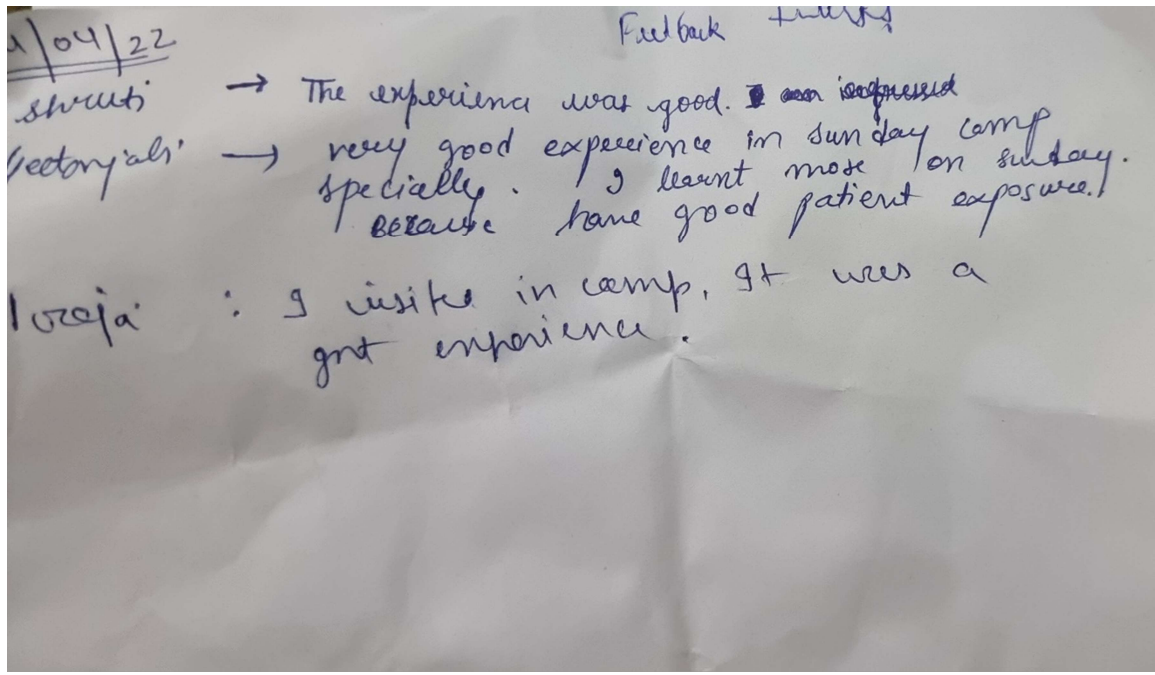 /04/22
Feedback
shruti → The experienc was good.
→ very good expereience in sunday camp
specially. I learnt more on sunday.
Because have good patient exposure.
: I visite in camp, It was a
grt experience.